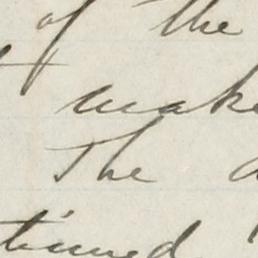 of the
make
The
tinued